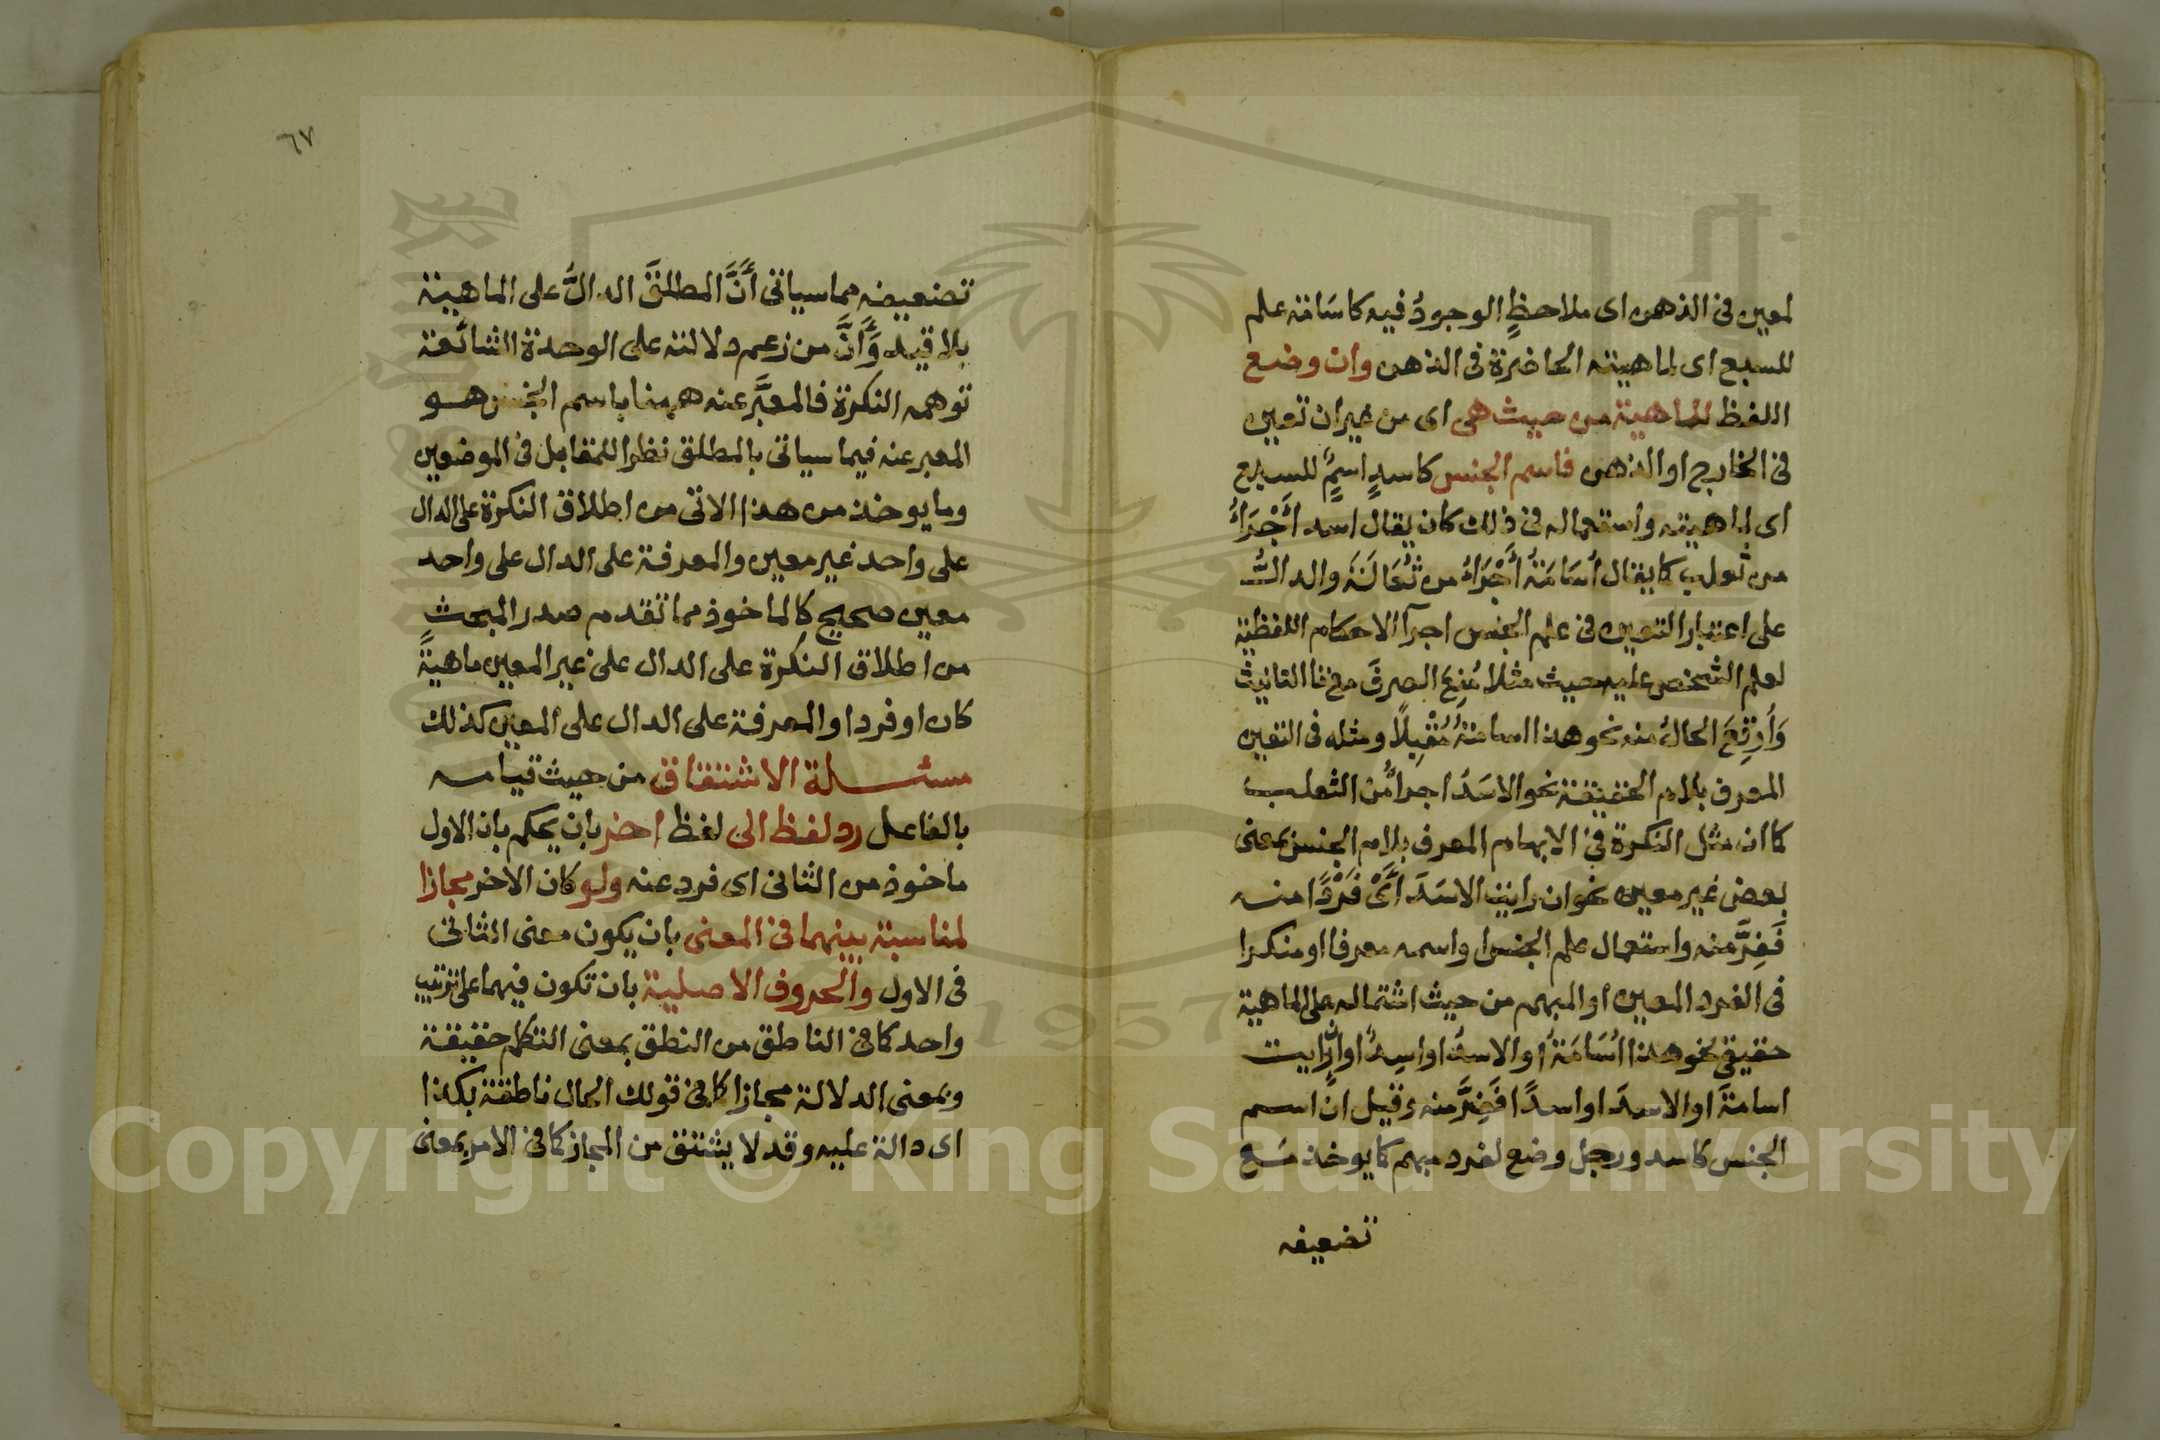 لمعين فى الذهن اى ملاحظٍ الوجودُ فيه كاسَامة علم
للسبع اى لماهيته الحاضرة فى الذهن وان وضع
اللفظ للماهية من حيث هى اى من غير ان تعين
فى الخارج او الذهن فاسم الجنس كاسدٍ اسمٌ للسبع
اى لماهيته واستعماله فى ذلك كان يقال اسد اَجْرَاءُ
من ثعلب كما يقال اُسَامَةُ اَجْرَاءُ من ثُعَالَةَ والدالُّ
على اعتبار التعين فى علم الجنس اجرآ الاحكام اللفظية
لعلم الشخص عليه حيث مثلا مُنِعَ الصرفَ مع تا التانيث
وَاُوقِعَ الحالُ منه نحو هذا اسامةُ مُقْبِلًا ومثله فى التعين
المعرف بلام الحقيقة نحو الاسَدُ اجراُ من الثعلب
كما ان مثل النكرة فى الابهام المعرف بلام الجنس بمعنى
بعض غير معين نحو ان رايت الاسَدَ اَىْ فَرْدًا منه
فَفِرَّ منه واستعمال علم الجنس او اسمه معرفا او منكرا
فى الفرد المعين او المبهم من حيث اشتماله على الماهية
حقيقى نحو هذا اُسَامَةُ او الاسدُ او اسدٌ او اِنْ رايت
اسامةَ او الاسدَ او اسدًا فَفِرَّ منه وقيل ان اسم
الجنس كاسد ورجل وضع لفرد مبهم كما يوخذ مَع
تضعيفه
٦٧
تضعيفه مما سياتى أَنَّ المطلقَ الدالُّ على الماهية
بلا قيد وَأَنَّ من زعم دلالته على الوحدة الشائعة
توهمه النكرة فالمعبَّر عنه ههنا باسم الجنس هو
المعبر عنه فيما سياتى بالمطلق نظرا للمقابل فى الموضعين
وما يوخذ من هذا الاتى من اطلاق النكرة على الدال
على واحد غير معين والمعرفة على الدال على واحد
معين صحيح كالماخوذ مما تقدم صدر المبحث
من اطلاق النكرة على الدال على غير المعين ماهيةً
كان او فردا والمعرفة على الدال على المعين كذلك
مسئلة الاشتقاق من حيث قيامه
بالفاعل رد لفظ الى لفظ اخر بان يحكم بان الاول
ماخوذ من الثانى اى فرد عنه ولو كان الاخر مجازا
لمناسبة بينهما فى المعنى بان يكون معنى الثانى
فى الاول والحروف الاصلية بان تكون فيهما على ترتيب
واحد كما فى الناطق من النطق بمعنى التكلم حقيقة
وبمعنى الدلالة مجازا كما فى قولك الحال ناطقة بكذا
اى دالة عليه وقد لا يشتق من المجاز كما فى الامر بمعنى
Copyright © King Saud University
1957